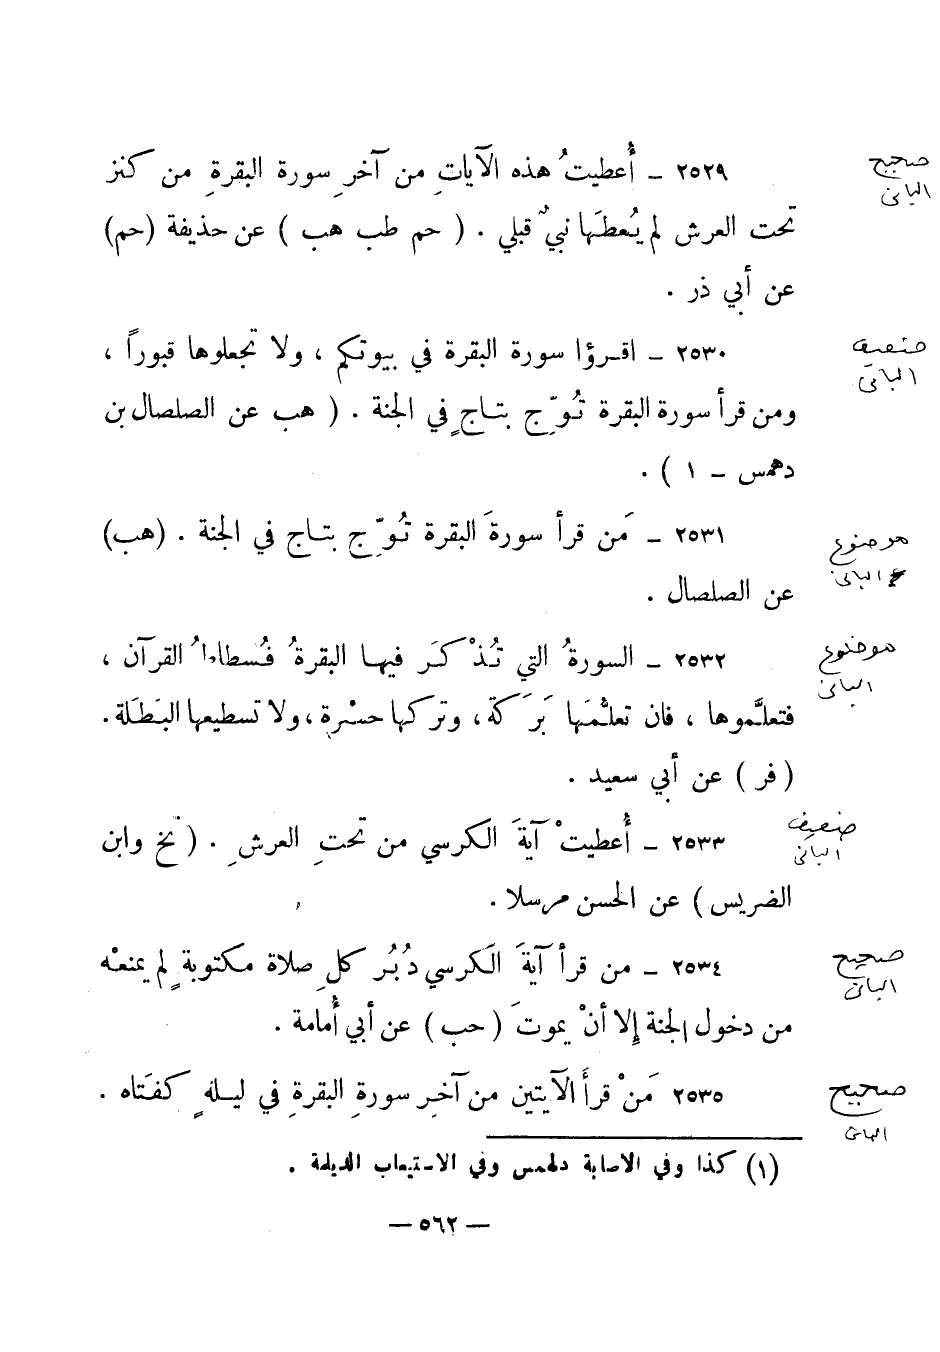 صحيح
الباني
٢٥٢٩ ـ أُعطيتُ هذه الآياتِ من آخرِ سورة البقرةِ من كنز
تحت العرش لم يُعطَها نبيٌّ قبلي . ( حم طب هب ) عن حذيفة (حم)
عن أبي ذر .
ضعيف
الباني
٢٥٣٠ ـ اقرؤا سورة البقرة في بيوتكم ، ولا تجعلوها قبوراً ،
ومن قرأ سورة البقرة تُوِّج بتاجٍ في الجنة . ( هب عن الصلصال بن
دهمس ـ ١ ) .
موضوع
الباني
٢٥٣١ ـ مَن قرأ سورةَ البقرة تُوِّج بتاج في الجنة . (هب)
عن الصلصال .
موضوع
الباني
٢٥٣٢ ـ السورةُ التي تُذْكَر فيها البقرةُ فُسطاطُ القرآن ،
فتعلَّموها ، فان تعلُّمَها بَرَكة ، وتركها حسْرة ، ولا تسطيعها البَطَلة .
( فر ) عن أبي سعيد .
ضعيف
الباني
٢٥٣٣ ـ أُعطيتْ آيةَ الكرسي من تحتِ العرشِ . ( تخ وابن
الضريس ) عن الحسن مرسلا .
صحيح
الباني
٢٥٣٤ ـ من قرأ آيةَ الكرسي دُبُر كلِ صلاة مكتوبةٍ لم يمنعْه
من دخول الجنة إلا أنْ يموتَ ( حب ) عن أبي أُمامة .
صحيح
الباني
٢٥٣٥ مَنْ قرأَ الآيتين من آخرِ سورةِ البقرةِ في ليلةٍ كفَتاه .
(١) كذا وفي الاصابة دلهمس وفي الاستيعاب الديلمة .
— ٥٦٢ —